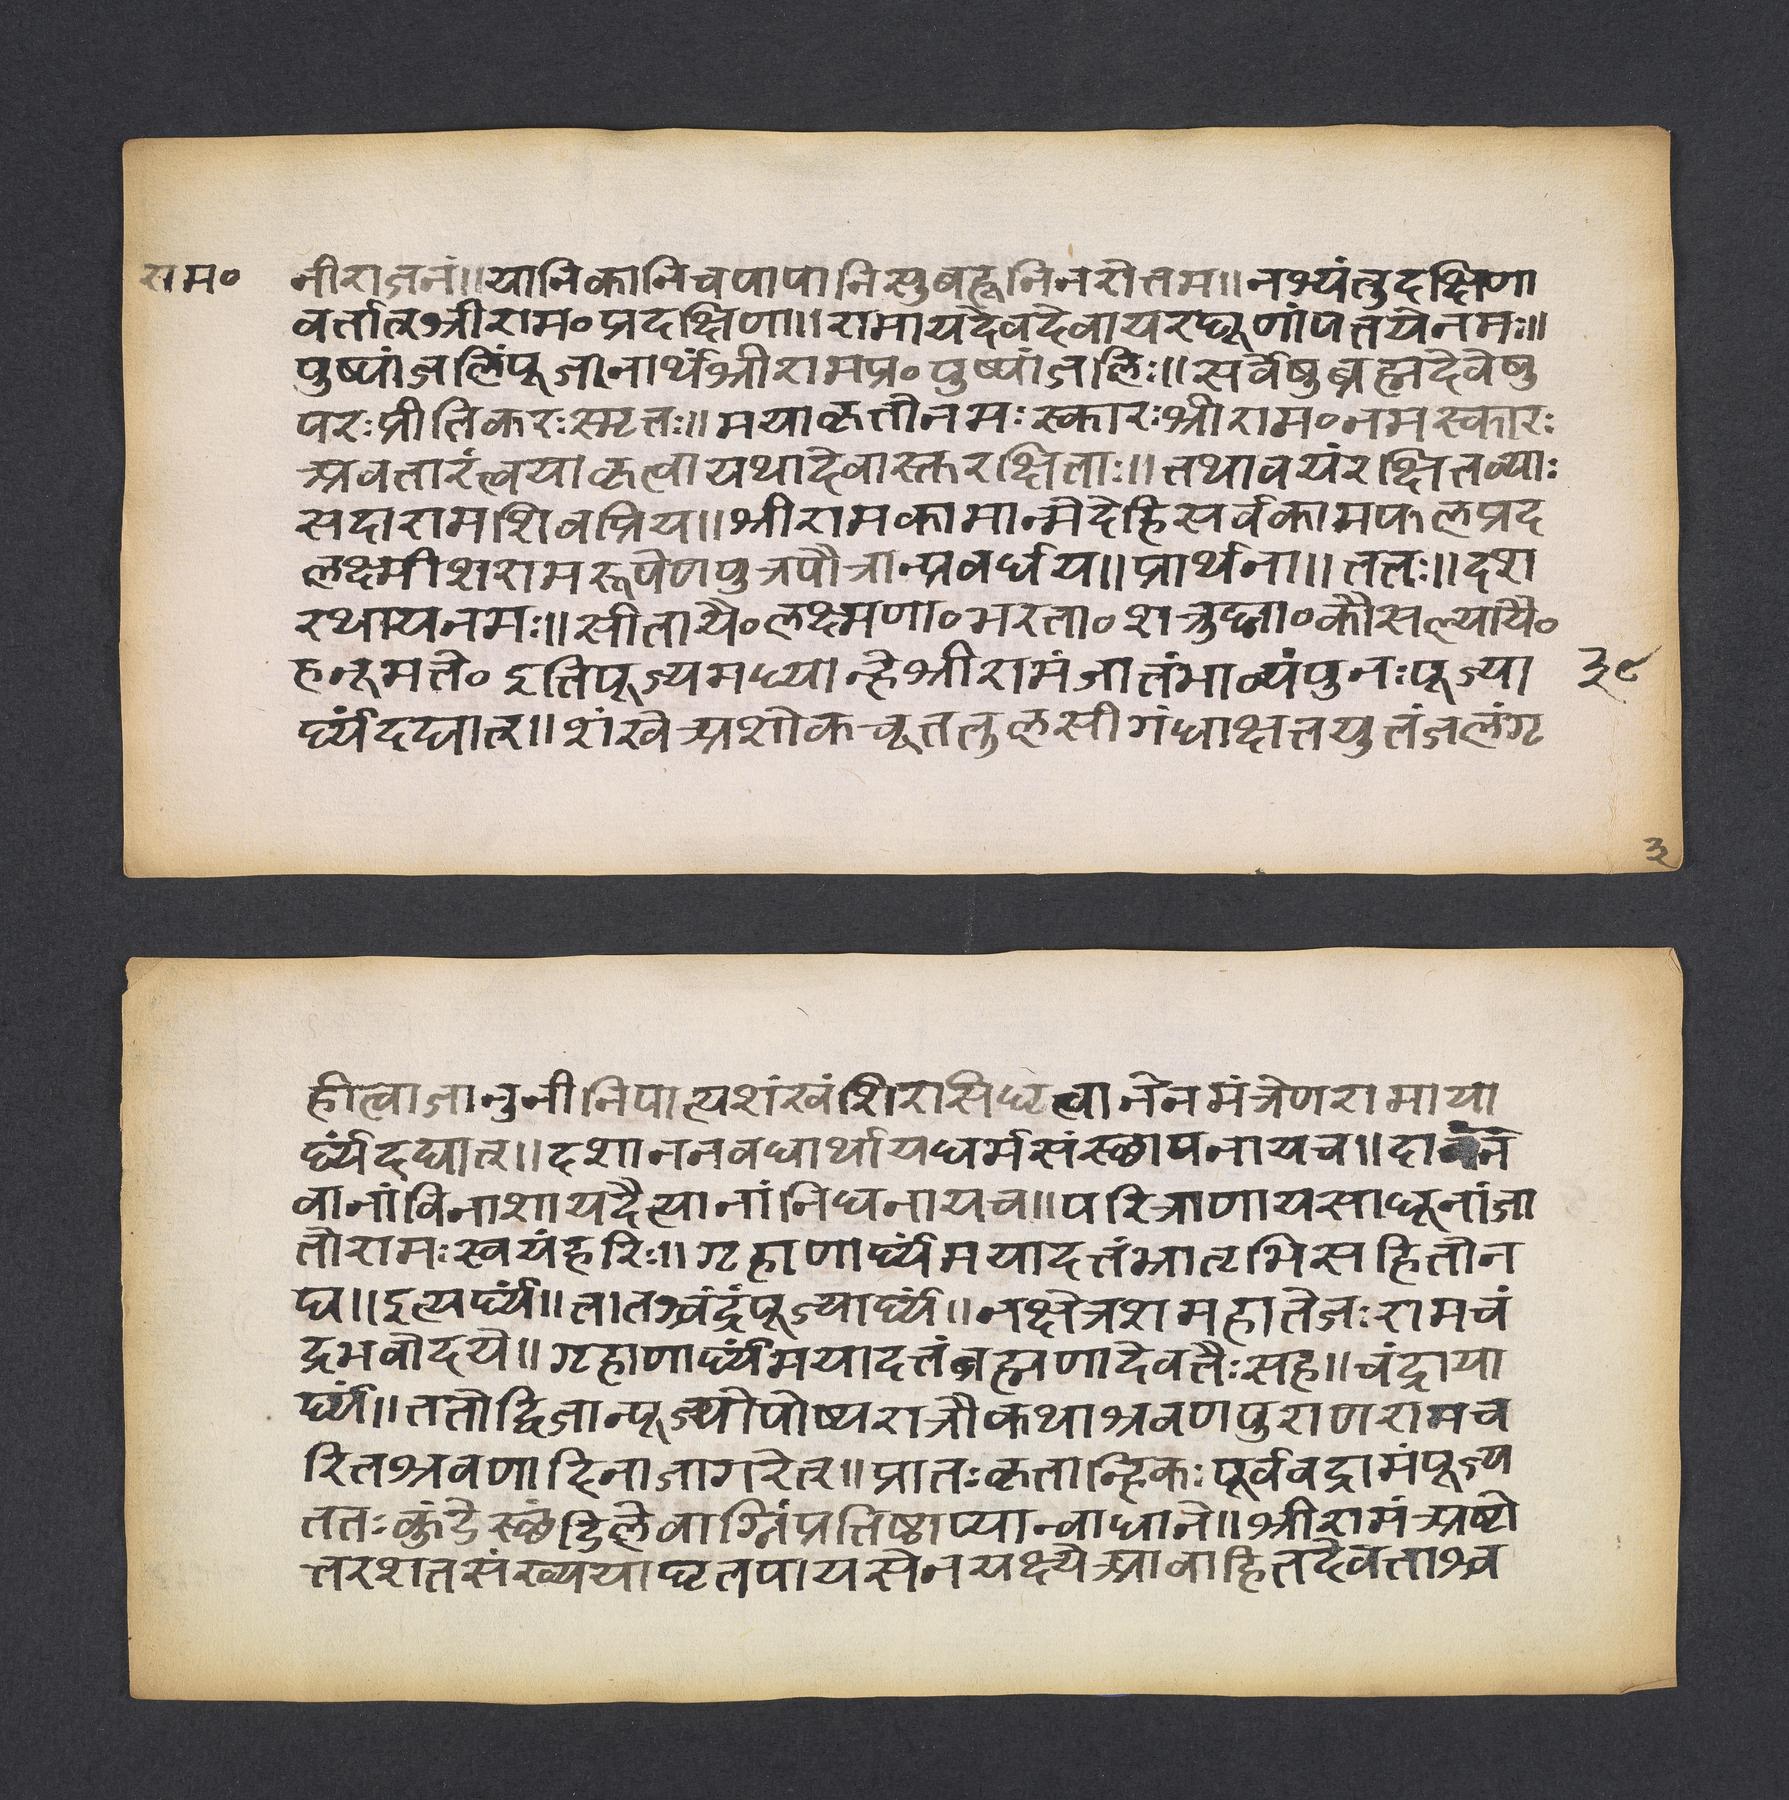 राम॰
नीराजनं॥यानिकानिचपापानिसुबहूनिनरोत्तम॥नश्यंतुदक्षिणा
वर्तात्श्रीराम॰प्रदक्षिणा॥रामायदेवदेवायरघूणांपतयेनमः॥
पुष्पांजलिंपूजानार्थंश्रीरामप्र॰पुष्पांजलिः॥सर्वेषुब्रह्मदेवेषु
परःप्रीतिकरःस्मृतः॥मयाकृतोनमःस्कारःश्रीराम॰नमस्कारः
अवतारंत्वयाकृत्वायथादेवास्तरक्षिताः॥तथावयंरक्षितव्याः
सदारामशिवप्रिय॥श्रीरामकामान्मेदेहिसर्वकामफलप्रद
लक्ष्मीशरामरूपेणपुत्रपौत्रान्प्रवर्धय॥प्रार्थना॥ततः॥दश
रथायनमः॥सीतायै॰लक्ष्मणा॰भरता॰शत्रुघ्ना॰कौसल्यायै॰
हनूमते॰इतिपूज्यमध्यान्हेश्रीरामंजातंभाव्यंपुनःपूज्या
३९
र्घ्यंदद्यात्॥शंखेअशोकचूततुलसीगंधाक्षतयुतंजलंगृ
३
हीत्वाजानुनीनिपात्यशंखंशिरसिधृत्वानेनमंत्रेणरामाया
र्घ्यंदद्यात्॥दशाननवधार्थायधर्मसंस्छापनायच॥दा
वानांविनाशायदैत्यानांनिधनायच॥परित्राणायसाधूनांजा
तोरामःस्वयंहरिः॥गृहाणार्घ्यंमयादत्तंभ्रातृभिसहितोन
घ॥इत्यर्घ्यं॥तातश्चंद्रंपूज्यार्घ्यं॥नक्षेत्रशमहातेजःरामचं
द्रभवोदये॥गृहाणार्घ्यंमयादत्तंब्रह्मणादैवतैःसह॥चंद्राया
र्घ्यं॥ततोद्विजान्पूज्योपोष्यरात्रौकथाश्रवणपुराणरामच
रितश्रवणादिनाजागरेत्॥प्रातःकृतान्हिकःपूर्ववद्रामंपूज्य
ततःकुंडेस्छंडिलेवाग्निंप्रतिष्ठाप्यान्वाधाने॥श्रीरामंअष्टो
त्तरशतसंख्ययाघृतपायसेनयक्ष्येआवाहितदेवताश्च